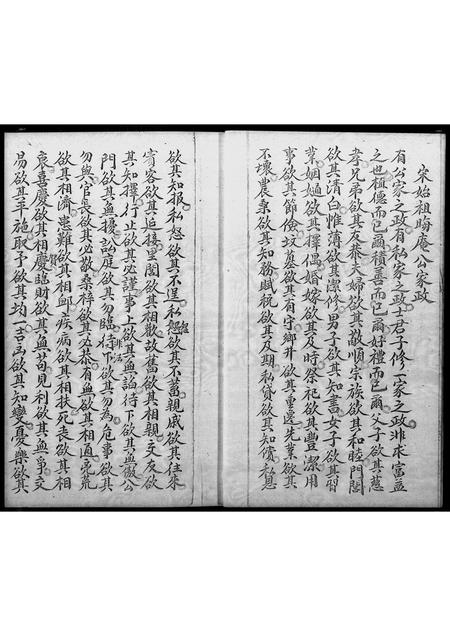 宋始祖晦庵公家政
有公家之政有私家之政士君子修一家之政非求富益
之也植德而已爾積善而已爾好禮而已爾父子欲其慈
孝兄弟欲其友恭夫婦欲其敬順宗族欲其和睦門閭
欲其清白帷薄欲其潔修男子欲其知書女子欲其習
業姻媾欲其擇偶婚嫁欲其及時祭祀欲其豐潔用
事欲其節儉坟墓欲其有守鄉井欲其重遷先業欲其
不壞農桑欲其知務賦稅欲其及期私貸欲其知償私恩
欲其知报私怨欲其不逞私忿欲其不蓄親戚欲其往來
賓客欲其迎接里閭欲其相歡故舊欲其相親交友欲
其知擇行止欲其必謹事上欲其無諂待下欲其無傲公
門欲其無擾訟庭欲其勿臨非法欲其勿為危事欲其
勿與官長欲其必敬桑梓欲其必恭有無欲其相通凶荒
欲其相濟患難欲其相恤疾病欲其相扶死丧欲其相
哀喜慶欲其相慶臨財欲其無苟見利欲其無爭交
易欲其平施取予欲其均一吉凶欲其知變憂樂欲其